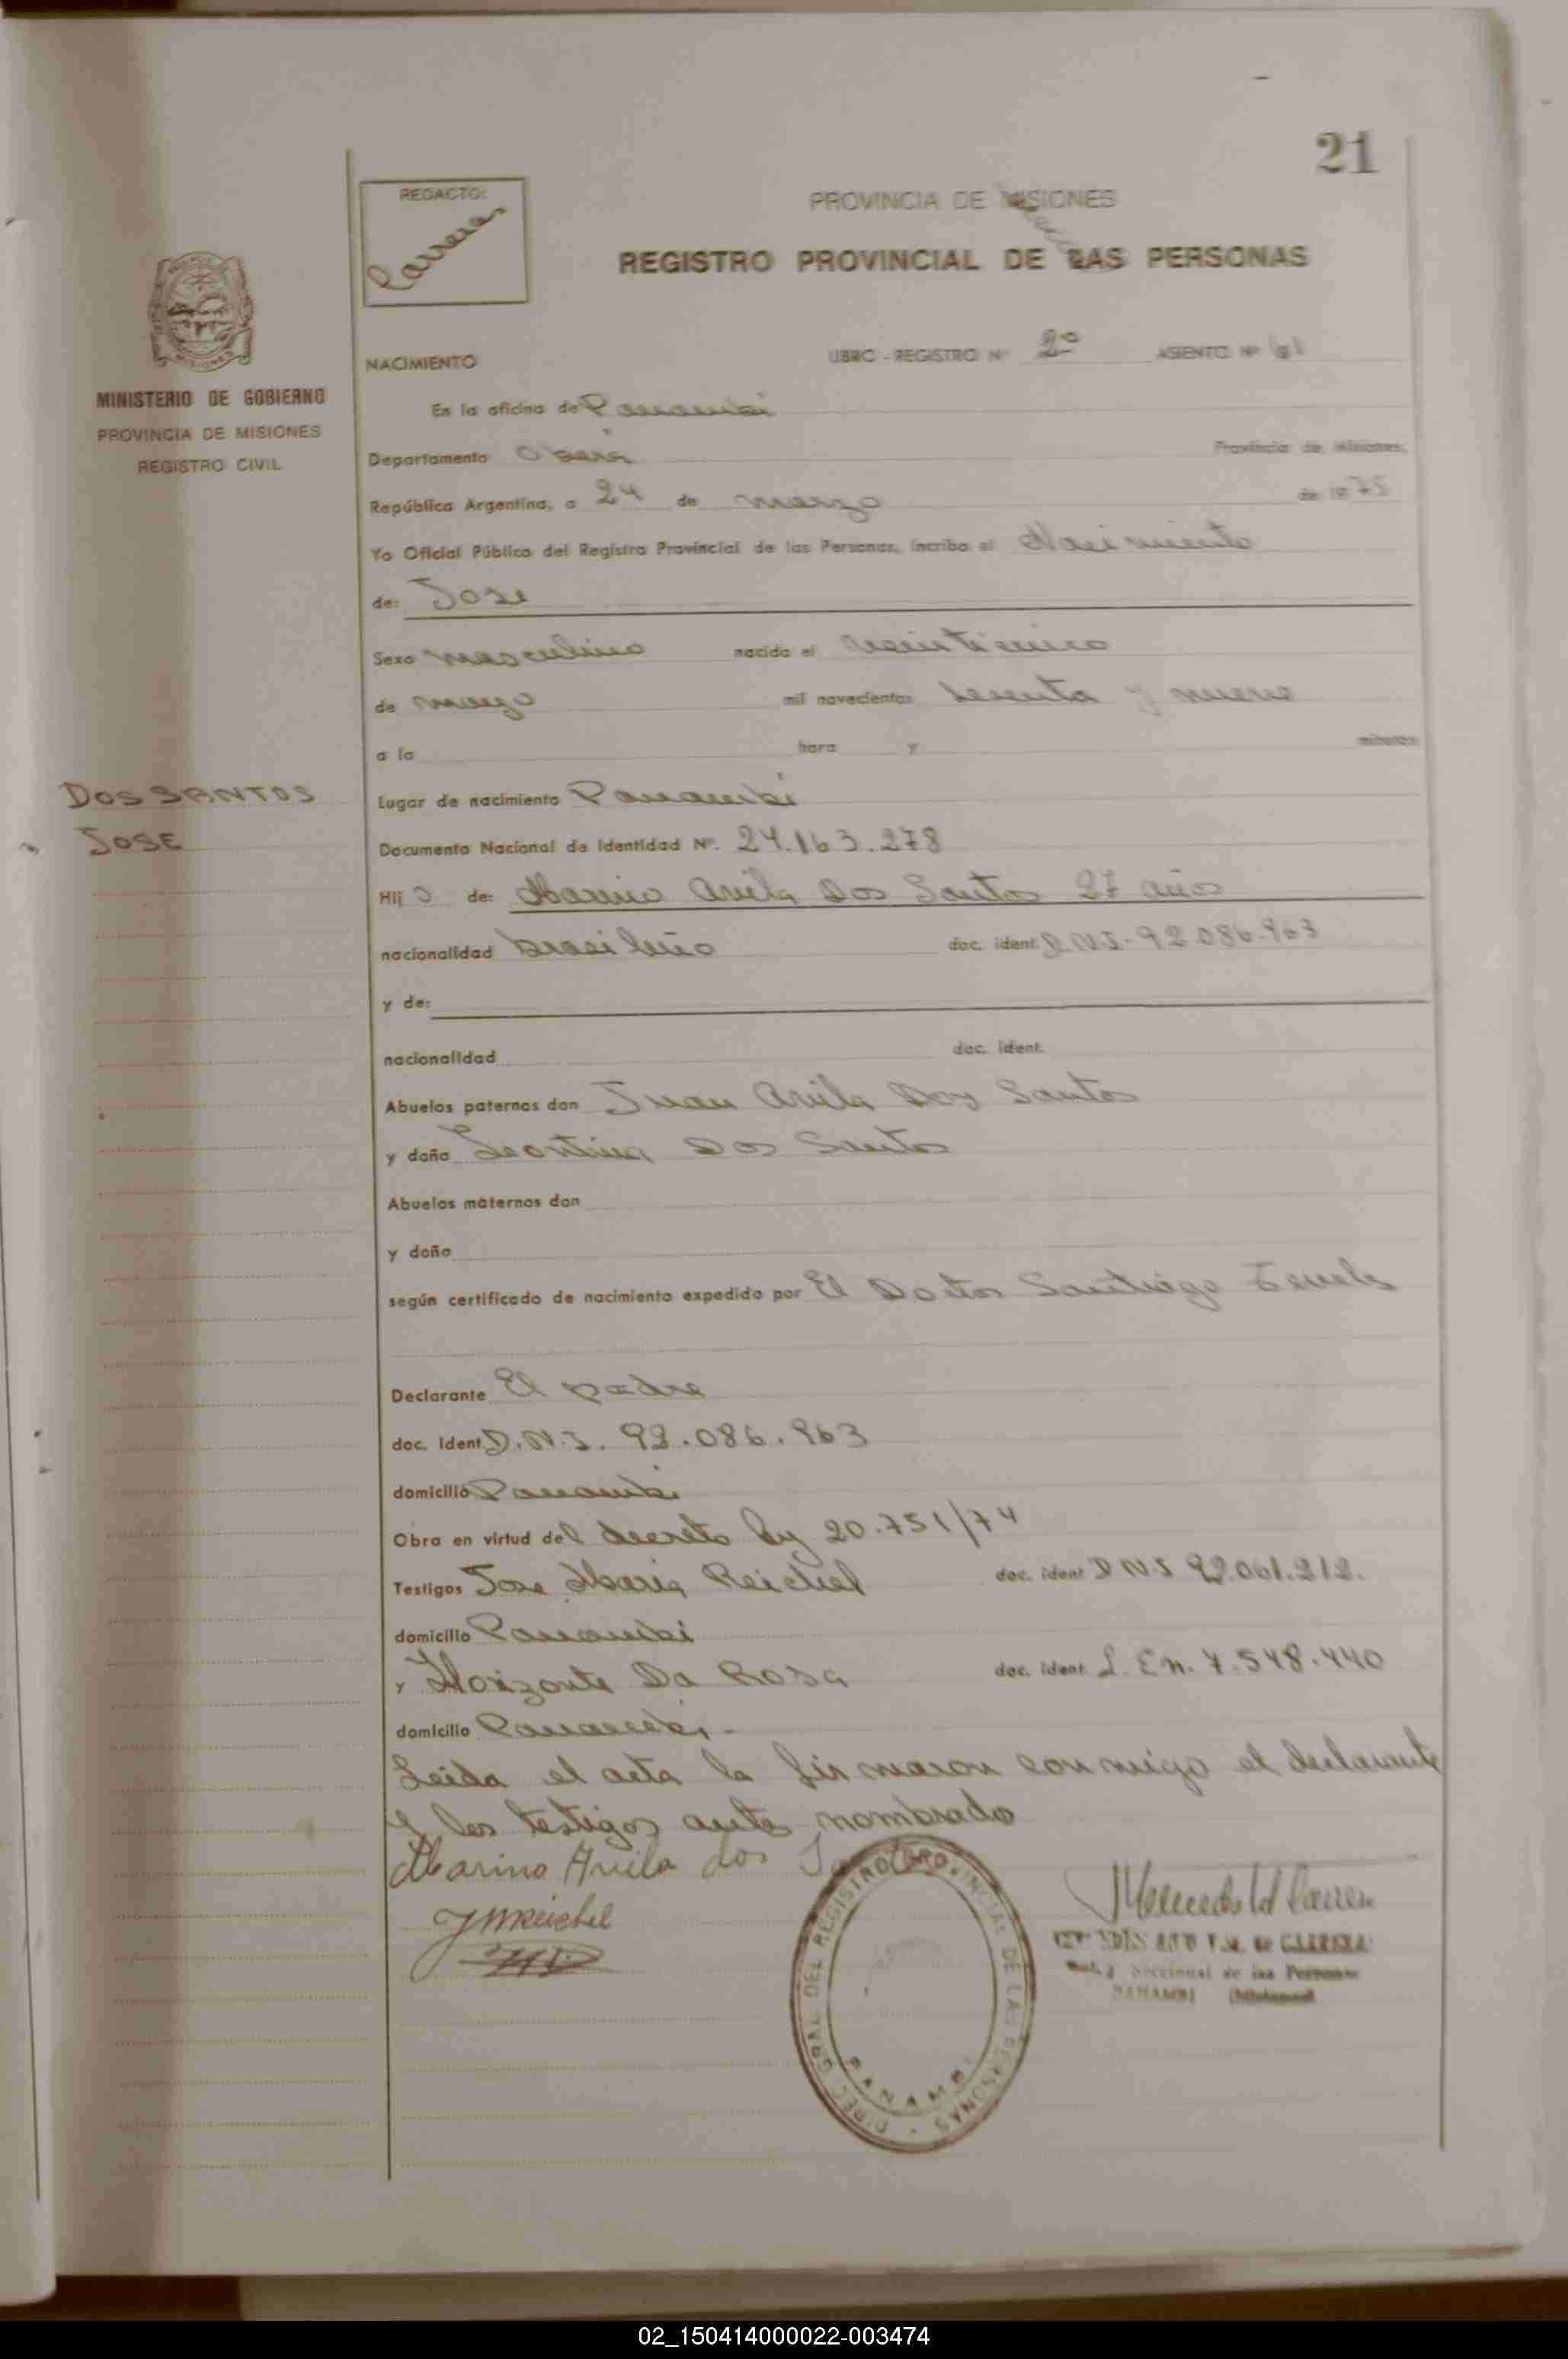 21
REDACTO:
Carrera
PROVINCIA DE MISIONES
REGISTRO PROVINCIAL DE LAS PERSONAS
MINISTERIO DE GOBIERNO
PROVINCIA DE MISIONES
REGISTRO CIVIL
NACIMIENTO LIBRO - REGISTRO Nº 2º ASIENTO Nº
En la oficina de Panambi
Departamento Obera Provincia de Misiones.
República Argentina, a 24 de marzo de 1975
Yo Oficial Público del Registro Provincial de las Personas, incribo el Nacimiento
de: Jose
Sexo masculino nacido el veinticinco
de marzo mil novecientos sesenta y nueve
a la hora y minutos
DOS SANTOS
JOSE
Lugar de nacimiento Panambi
Documento Nacional de Identidad Nº. 24.163.278
Hij o de: Marino Avila Dos Santos 27 años
nacionalidad brasileño doc. ident. D.N.I. 92.086.963
y de:
nacionalidad doc. ident.
Abuelos paternos don Juan Avila Dos Santos
y doña Leontina Dos Santos
Abuelos maternos don
y doña
según certificado de nacimiento expedido por El Doctor Santiago
Declarante El padre
doc. Ident. D.N.I. 92.086.963
domicilio Panambi
Obra en virtud del decreto ley 20.751/74
Testigos Jose Maria Reichel doc. ident D.N.I 92.061.212.
domicilio Panambi
y Horizonte Da Rosa doc. ident. L. En. 7.548.440
domicilio Panambi.-
Leida el acta la firmaron conmigo el declarante
y los testigos antes nombrado
Marino Avila dos
JMReichel
DIREC. GRAL. DEL REGISTRO PROVINCIAL DE LAS PERSONAS
PANAMBI
de CARRERA
Seccional de las Personas
PANAMBI (Misiones)
02_150414000022-003474